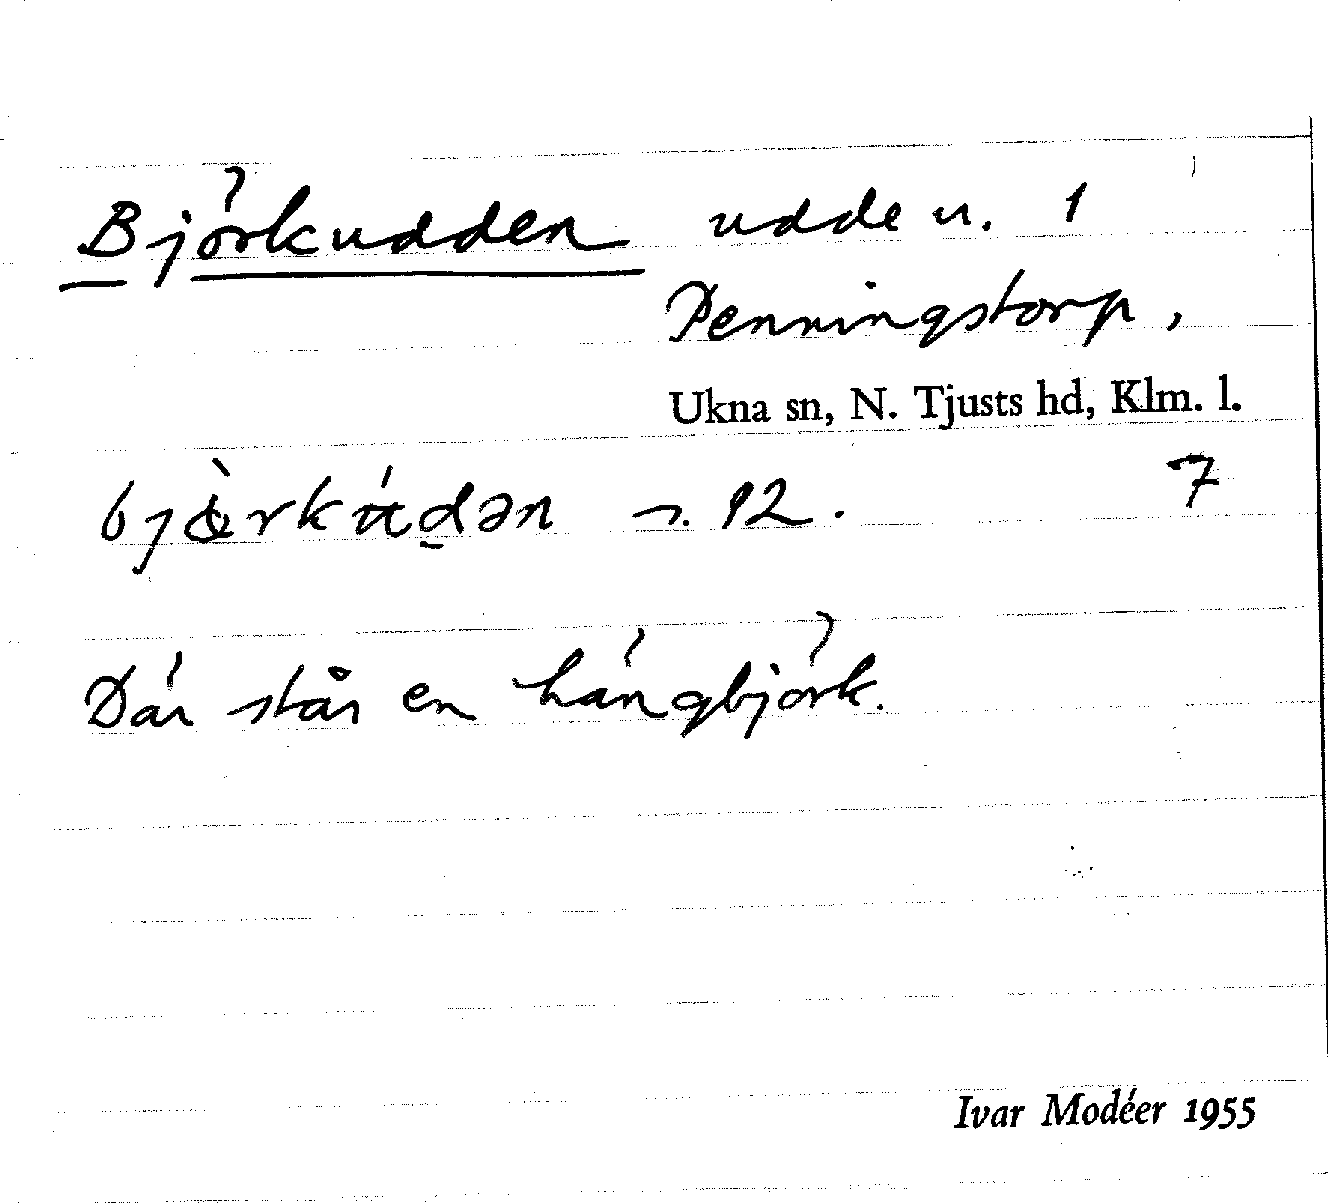 Björkudden udde u. 1
Penningstorp,
Ukna sn, N. Tjusts hd, Klm. l.
7
s. 92.
Där står en hängbjörk.
Ivar Modéer 1955